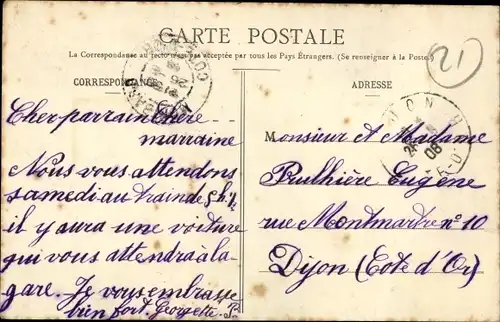 CARTE POSTALE
La Correspondance au recto n'est pas acceptée par tous les Pays Étrangers. (Se renseigner à la Poste.)
21
CORRESPONDANCE
ADRESSE
Cher parrain chère
marraine
Nous vous attendons
samedi au train de 5h. ½
il y aura une voiture
qui vous attendra à la
gare. Je vous embrasse
bien fort. Georgette.
Monsieur et Madame
Prulhière Eugène
rue Montmartre n° 10
Dijon (Cote d'Or)
DIJON
08